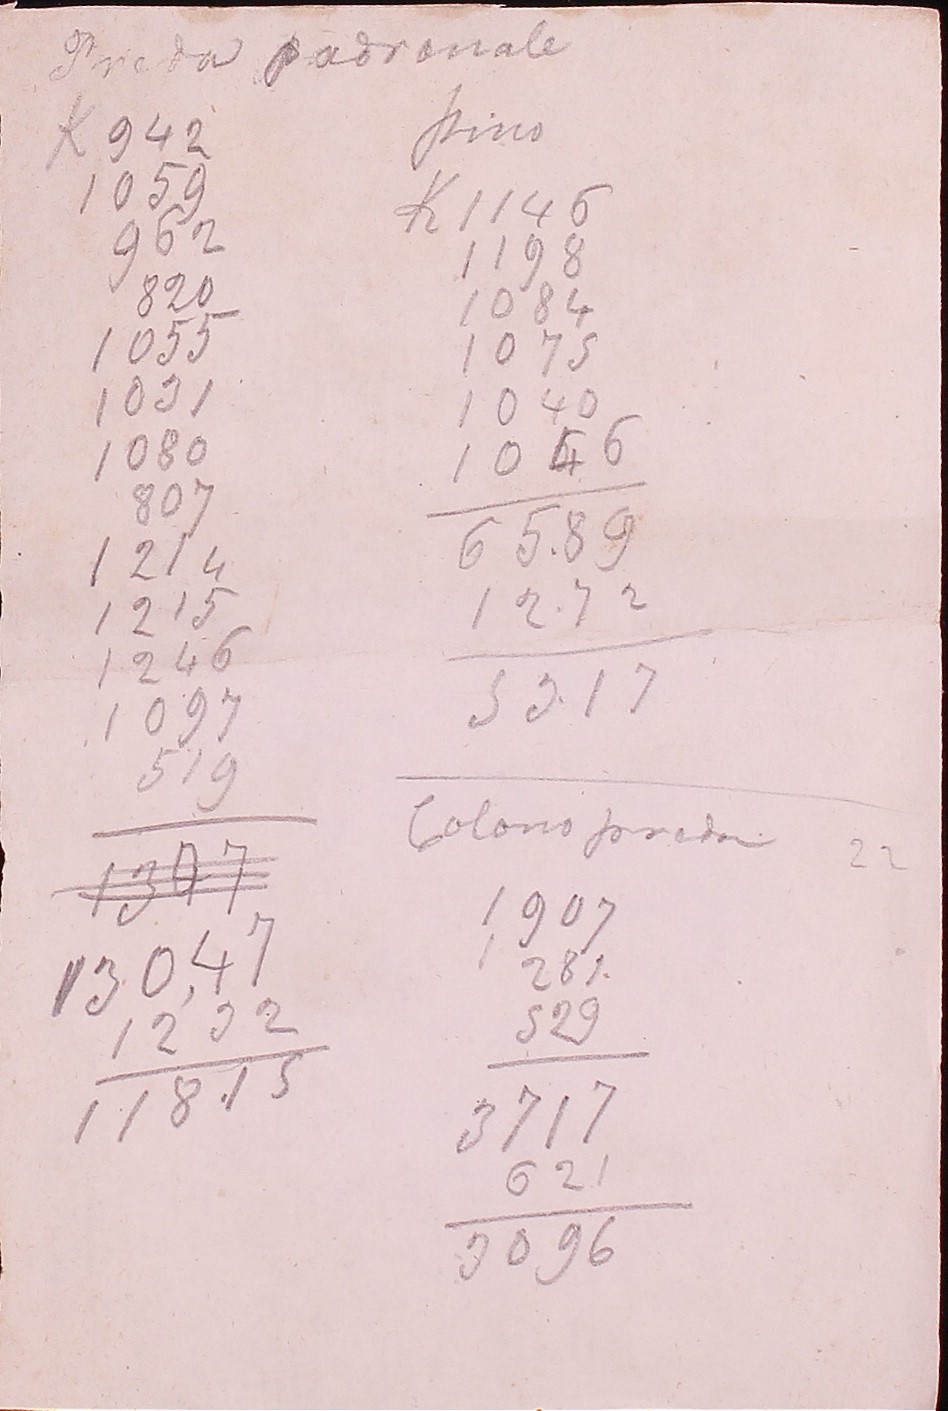 Preda padronale
K 942
1059
962
820
1055
1031
1080
807
1214
1215
1246
1097
519
13047
1232
11815
pino
K 1146
1198
1084
1075
1040
1046
65.89
12.72
53.17
Colono preda
22
1907
1281
529
3717
621
3096